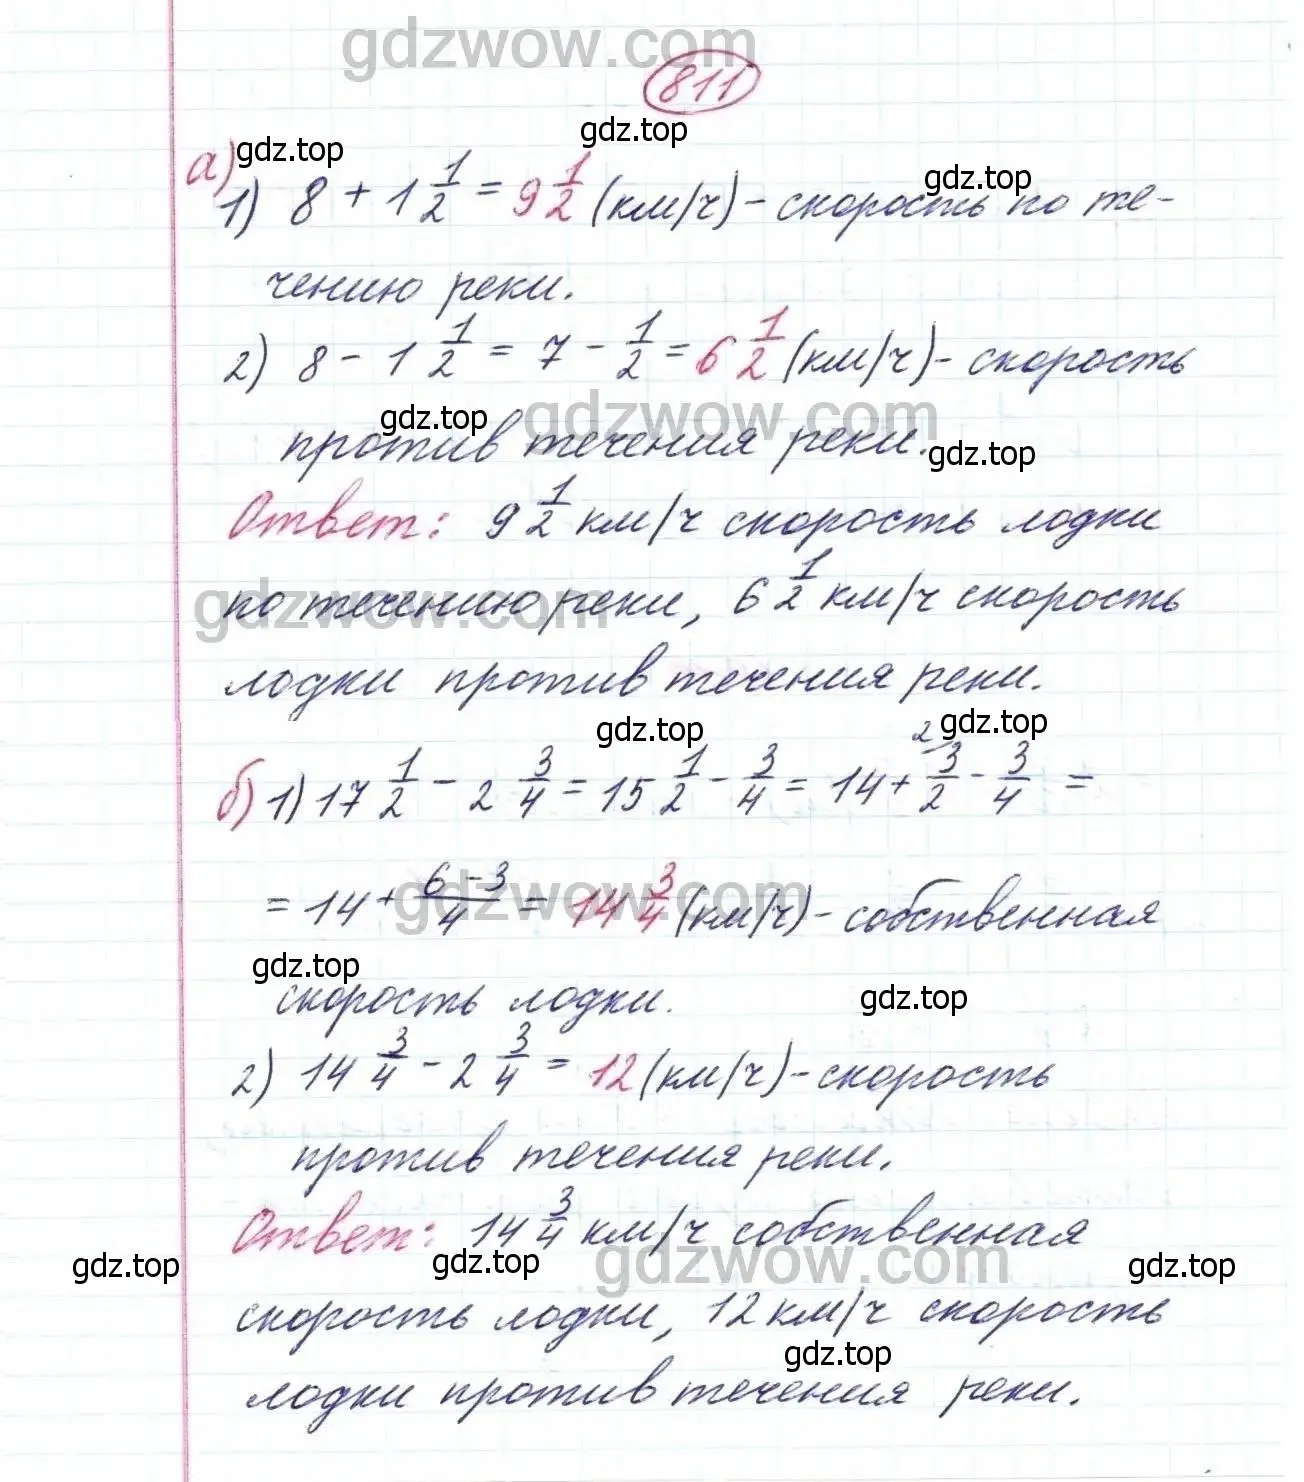 gdzwow.com
811
gdz.top
gdz.top
а)
1) 8 + 1 1/2 = 9 1/2 (км/ч) - скорость по те-
чению реки.
2) 8 - 1 1/2 = 7 - 1/2 = 6 1/2 (км/ч) - скорость
gdz.top gdzwow.com
против течения реки.
gdz.top
Ответ: 9 1/2 км/ч скорость лодки
gdzwow.com
по течению реки, 6 1/2 км/ч скорость
лодки против течения реки.
gdz.top gdz.top
б) 1) 17 1/2 - 2 3/4 = 15 1/2 - 3/4 = 14 + 2 3/2 - 3/4 =
gdzwow.com
= 14 + 6-3/4 = 14 3/4 (км/ч) - собственная
gdz.top gdz.top
скорость лодки.
2) 14 3/4 - 2 3/4 = 12 (км/ч) - скорость
против течения реки.
Ответ: 14 3/4 км/ч собственная
gdz.top gdz.top gdzwow.com gdz.top
скорость лодки, 12 км/ч скорость
gdz.top
лодки против течения реки.